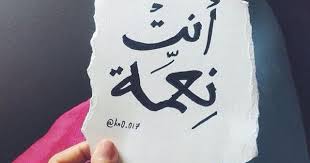 أنتَ
نِعمَّة
@ho0.017